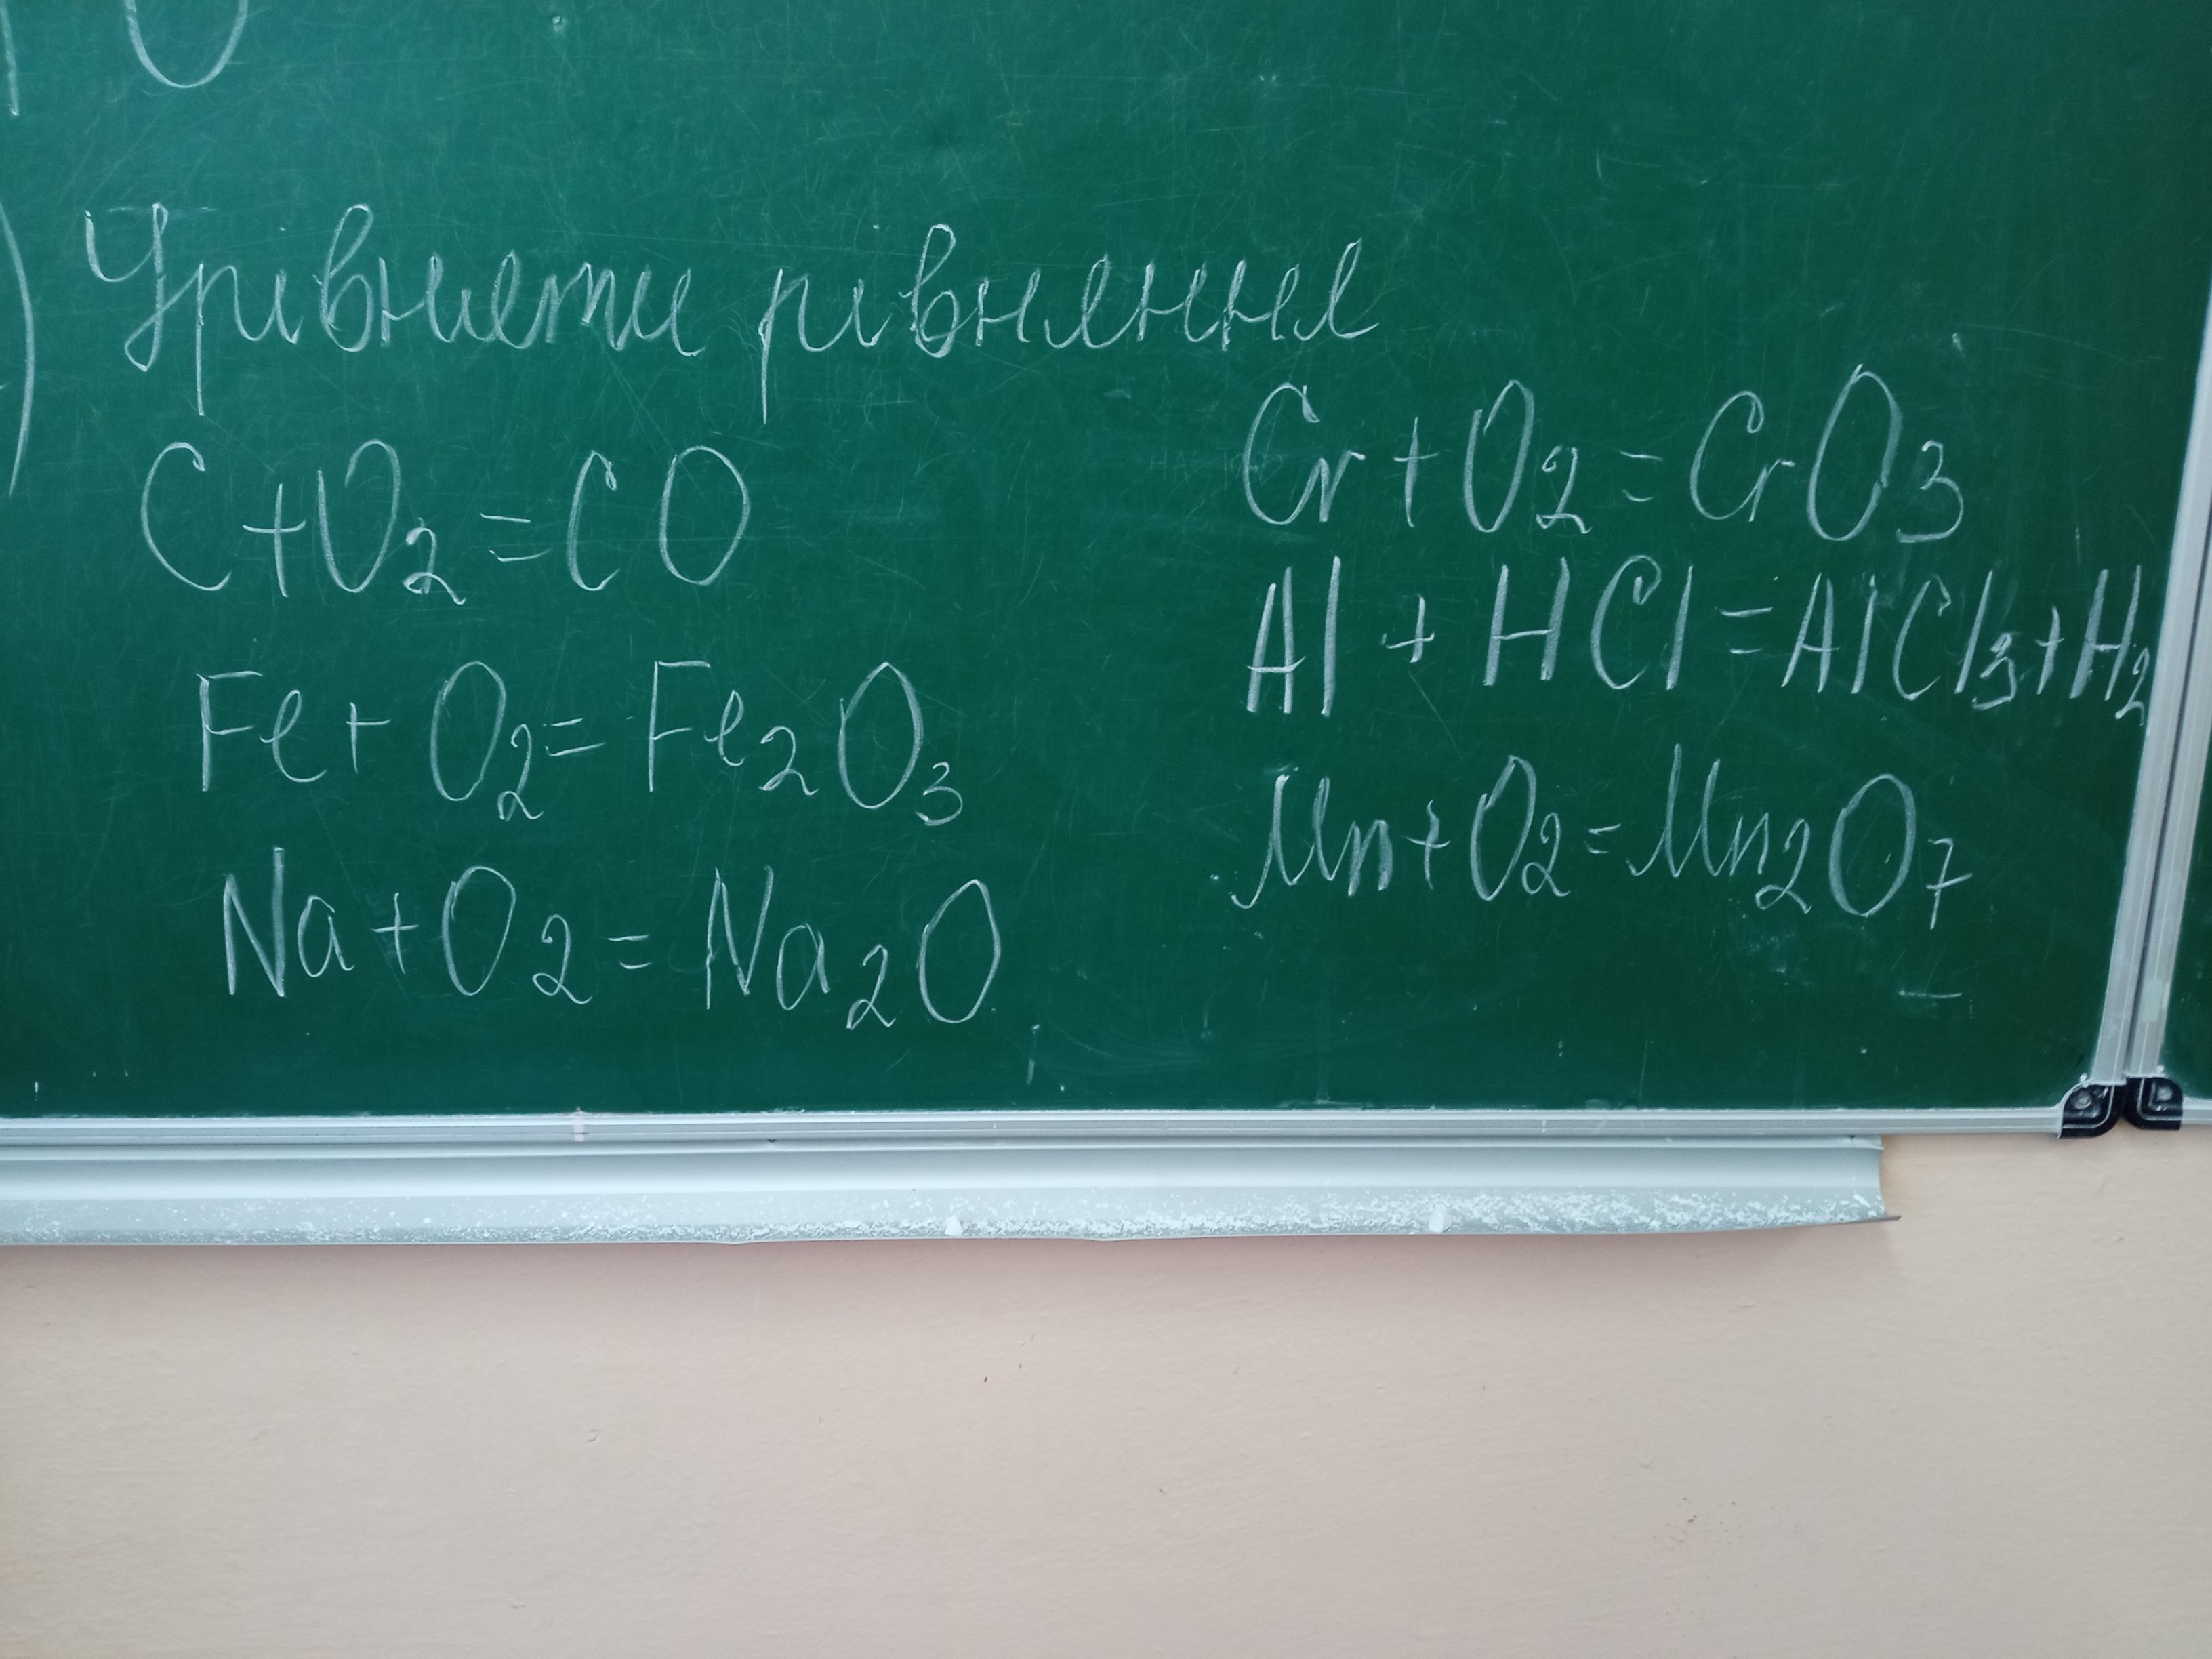 O
Уравняти равнения
C+O₂=CO
Fe+O₂=Fe₂O₃
Na+O₂=Na₂O
Cr+O₂=CrO₃
Al+HCl=AlCl₃+H₂
Mn+O₂=Mn₂O₇